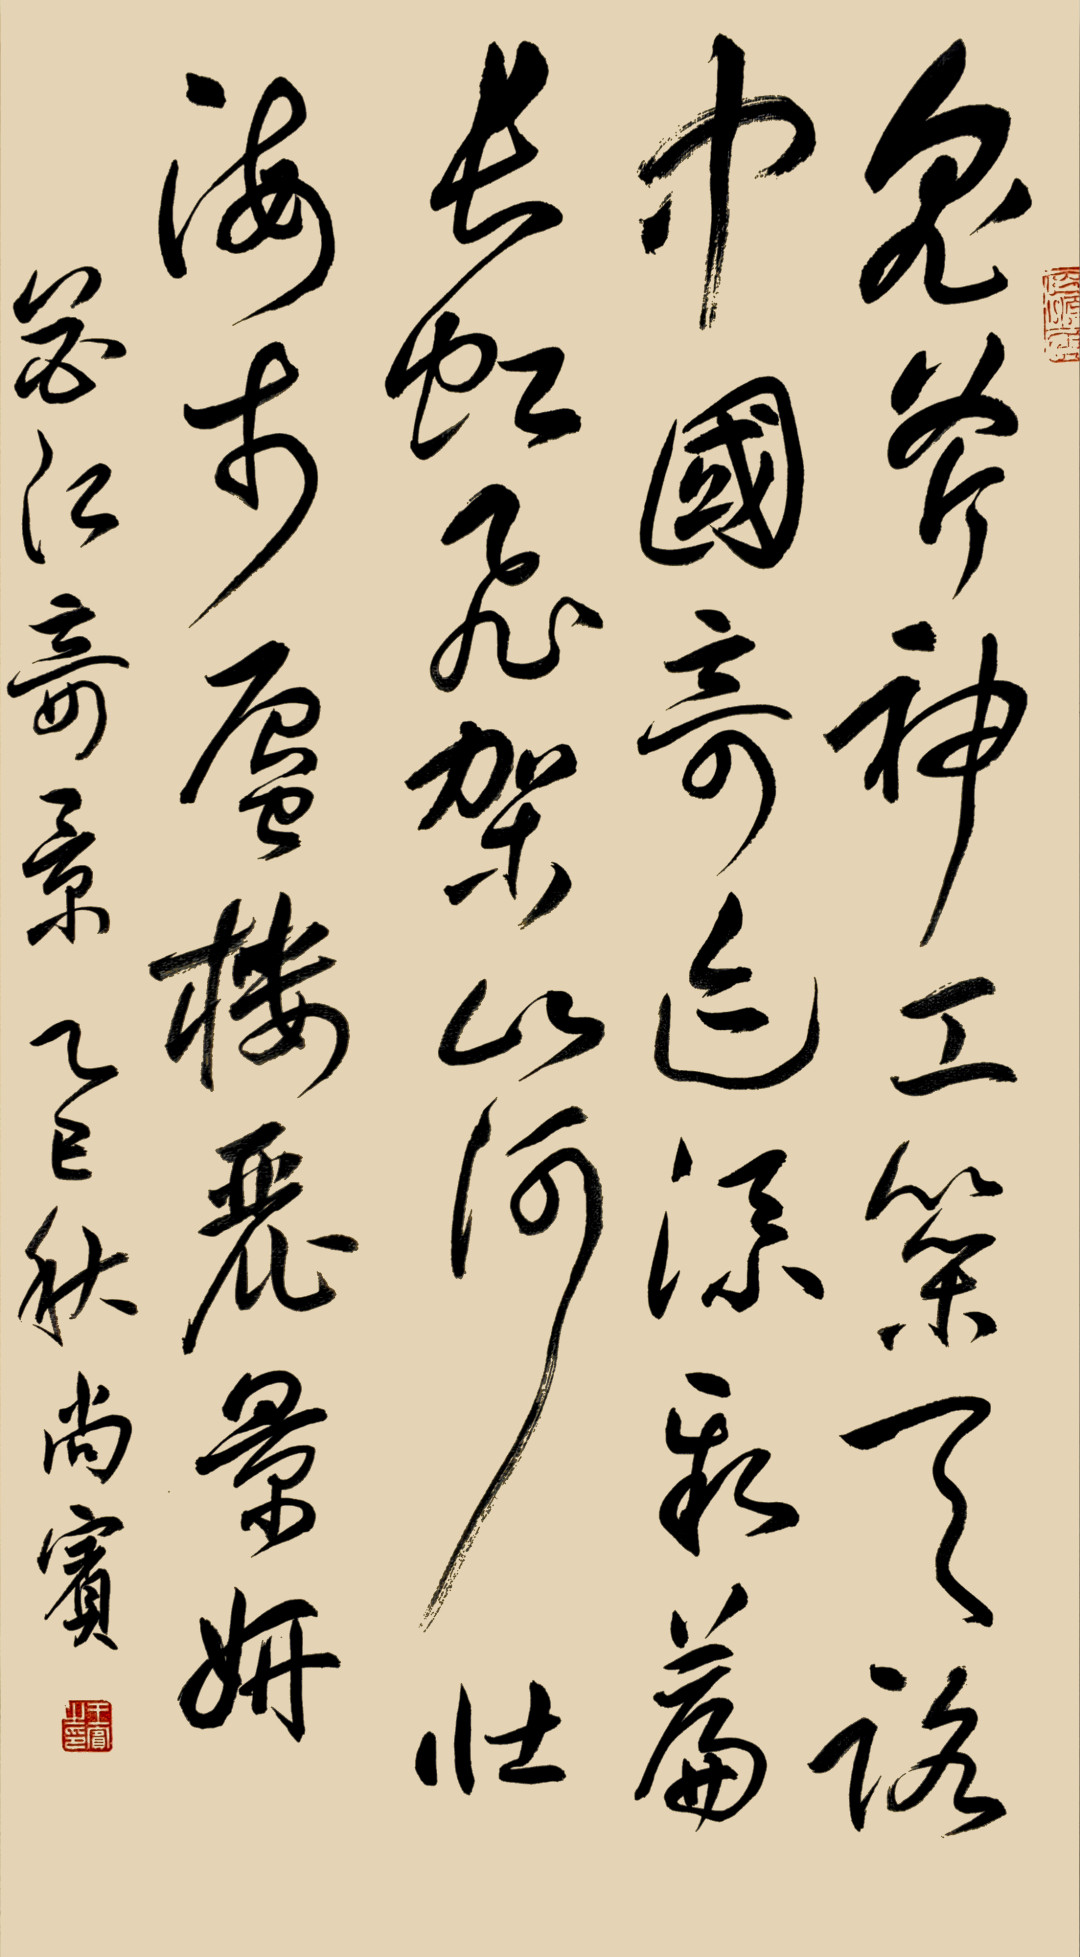 鬼斧神工築天路
中國奇迹添新篇
長虹飛架山河壯
海市蜃樓麗景妍
江奇景 乙巳秋 尚賓